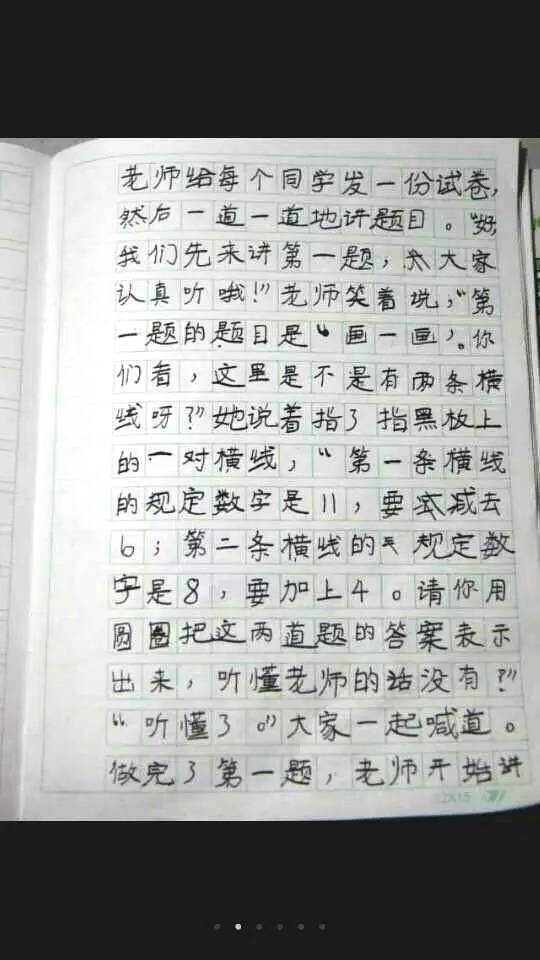 老师给每个同学发一份试卷,
然后一道一道地讲题目。“好,
我们先来讲第一题,大家
认真听哦!”老师笑着说,“第
一题的题目是“画一画”。你
们看,这里是不是有两条横
线呀?”她说着指了指黑板上
的一对横线,“第一条横线
的规定数字是11,要减去
6;第二条横线的规定数
字是8,要加上4。请你用
圆圈把这两道题的答案表示
出来,听懂老师的话没有?”
“听懂了。”大家一起喊道。
做完了第一题,老师开始讲